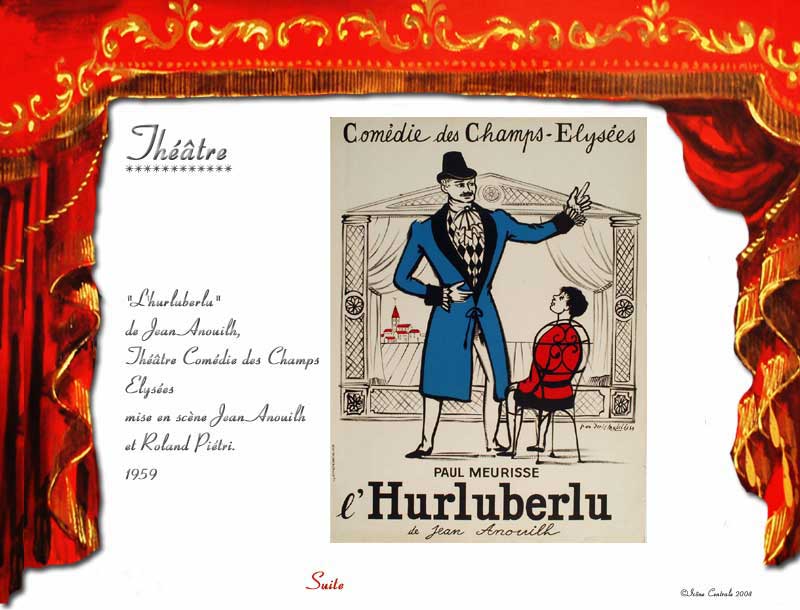 Théâtre
************
"L'hurluberlu"
de Jean Anouilh,
Théâtre Comédie des Champs
Elysées
mise en scène Jean Anouilh
et Roland Piétri.
1959
Comédie des Champs-Elysées
PAUL MEURISSE
l'Hurluberlu
de Jean Anouilh
Suite
2008